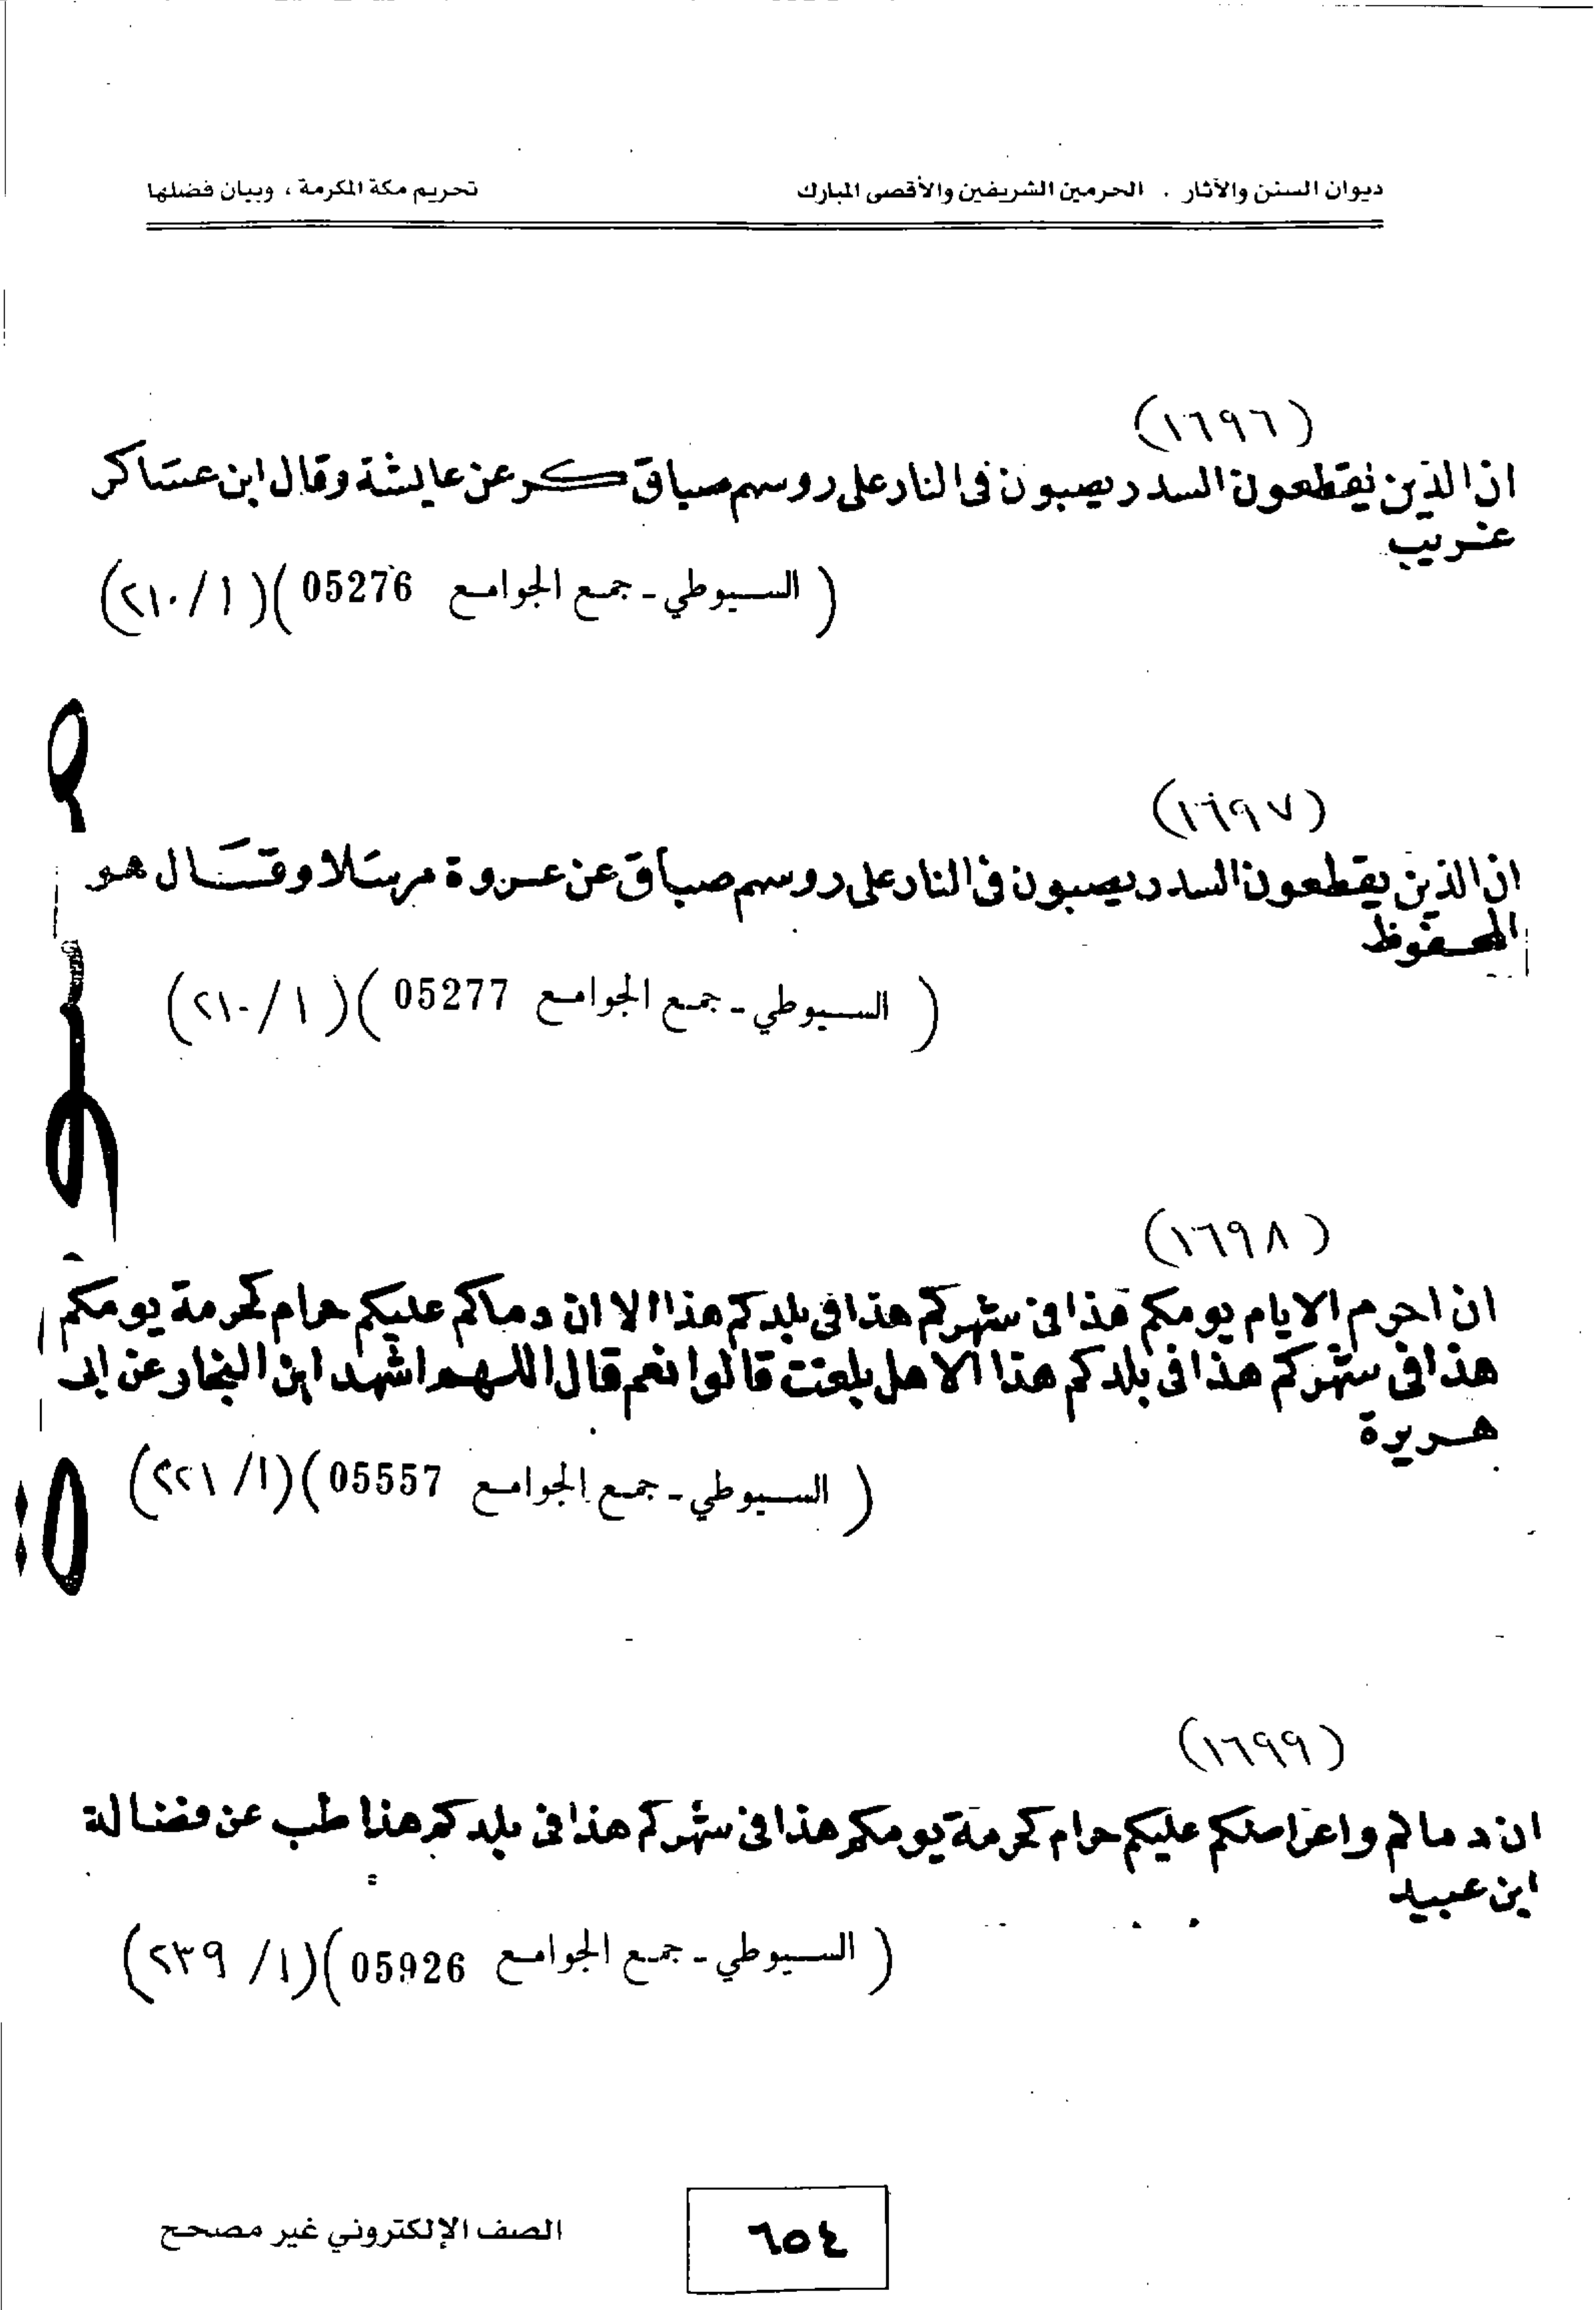 ديوان السنن والآثار . الحرمين الشريفين والأقصى المبارك تحريم مكة المكرمة ، وبيان فضلها
(١٦٩٦)
ان الذين يقطعون السدر يصبون فى النار على روسهم صباق كر عن عايشة وقال ابن عساكر
غريب
( السيوطي - جمع الجوامع 05276 )(١/٢١٠)
(١٦٩٧)
ان الذين يقطعون السدر يصبون فى النار على روسهم صباق عن عروة مرسلا وقال هو
المحفوظ
( السيوطي - جمع الجوامع 05277 )(١/٢١٠)
(١٦٩٨)
ان احرم الايام يومكم هذا فى شهركم هذا فى بلدكم هذا الا ان دماكم عليكم حرام كحرمة يومكم
هذا فى شهركم هذا فى بلدكم هذا الا هل بلغت قالوا نعم قال اللهم اشهد ابن النجار عن ابى
هريرة
( السيوطي - جمع الجوامع 05557 )(١/٢٢١)
(١٦٩٩)
ان دماكم واعراضكم عليكم حرام كحرمة يومكم هذا فى شهركم هذا فى بلدكم هذا طب عن فضالة
ابن عبيد
( السيوطي - جمع الجوامع 05926 )(١/٢٣٩)
٦٥٤
الصف الإلكتروني غير مصحح